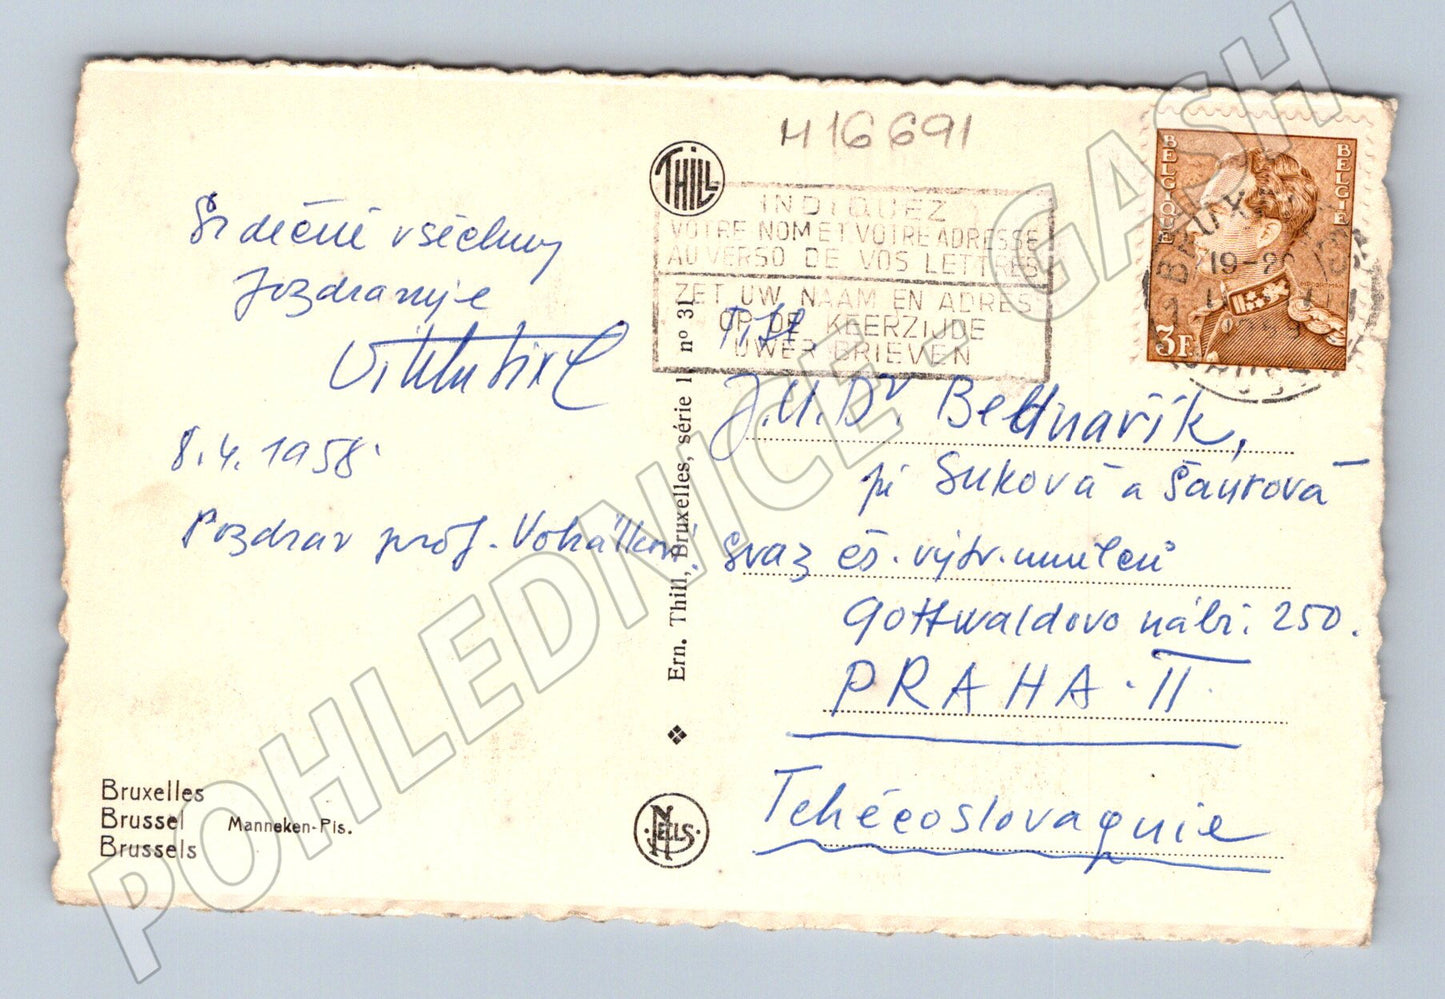 M 16691
THILL
INDIQUEZ
VOTRE NOM ET VOTRE ADRESSE
AU VERSO DE VOS LETTRES
ZET UW NAAM EN ADRES
OP DE KEERZIJDE
UWER BRIEVEN
BELGIQUE
BELGIE
3F
19-20
Srdečně všechny
pozdravuje
8.4.1958.
Pozdrav prof.
P.T.
J.U.Dr. Bednařík,
pí Suková a Šaurová
Svaz čs. výtv. umělců
Gottwaldovo nábř. 250.
PRAHA - II.
Tchécoslovaquie
Ern. Thill, Bruxelles, série 1, nº 31
NELS
Bruxelles
Brussel Manneken-Pis.
Brussels
POHLEDNICE - GASH